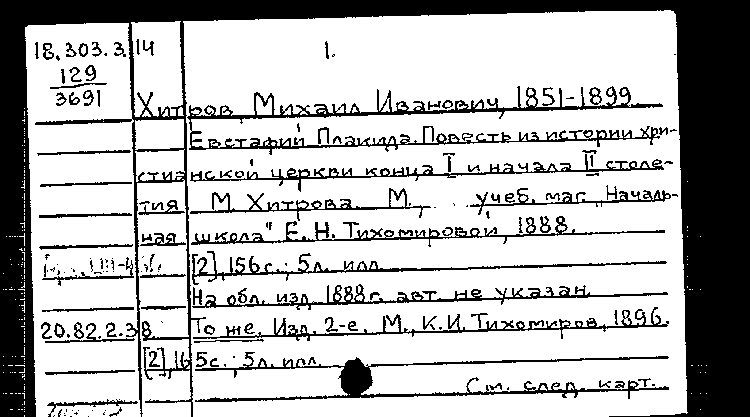 18.303.3.14 1.
129
3691
Хитров, Михаил Иванович, 1851-1899.
Евстафий Плакида. Повесть из истории хри-
стианской церкви конца I и начала II столе-
тия М. Хитрова. М., учеб. маг. „Началь-
ная школа" Е. Н. Тихомировой, 1888.
[2], 156 с.; 5 л. илл.
На обл. изд. 1888 г. авт. не указан.
20.82.2.38. То же. Изд. 2-е. М., К.И. Тихомиров, 1896.
[2], 165 с.; 5 л. илл.
См. след. карт.